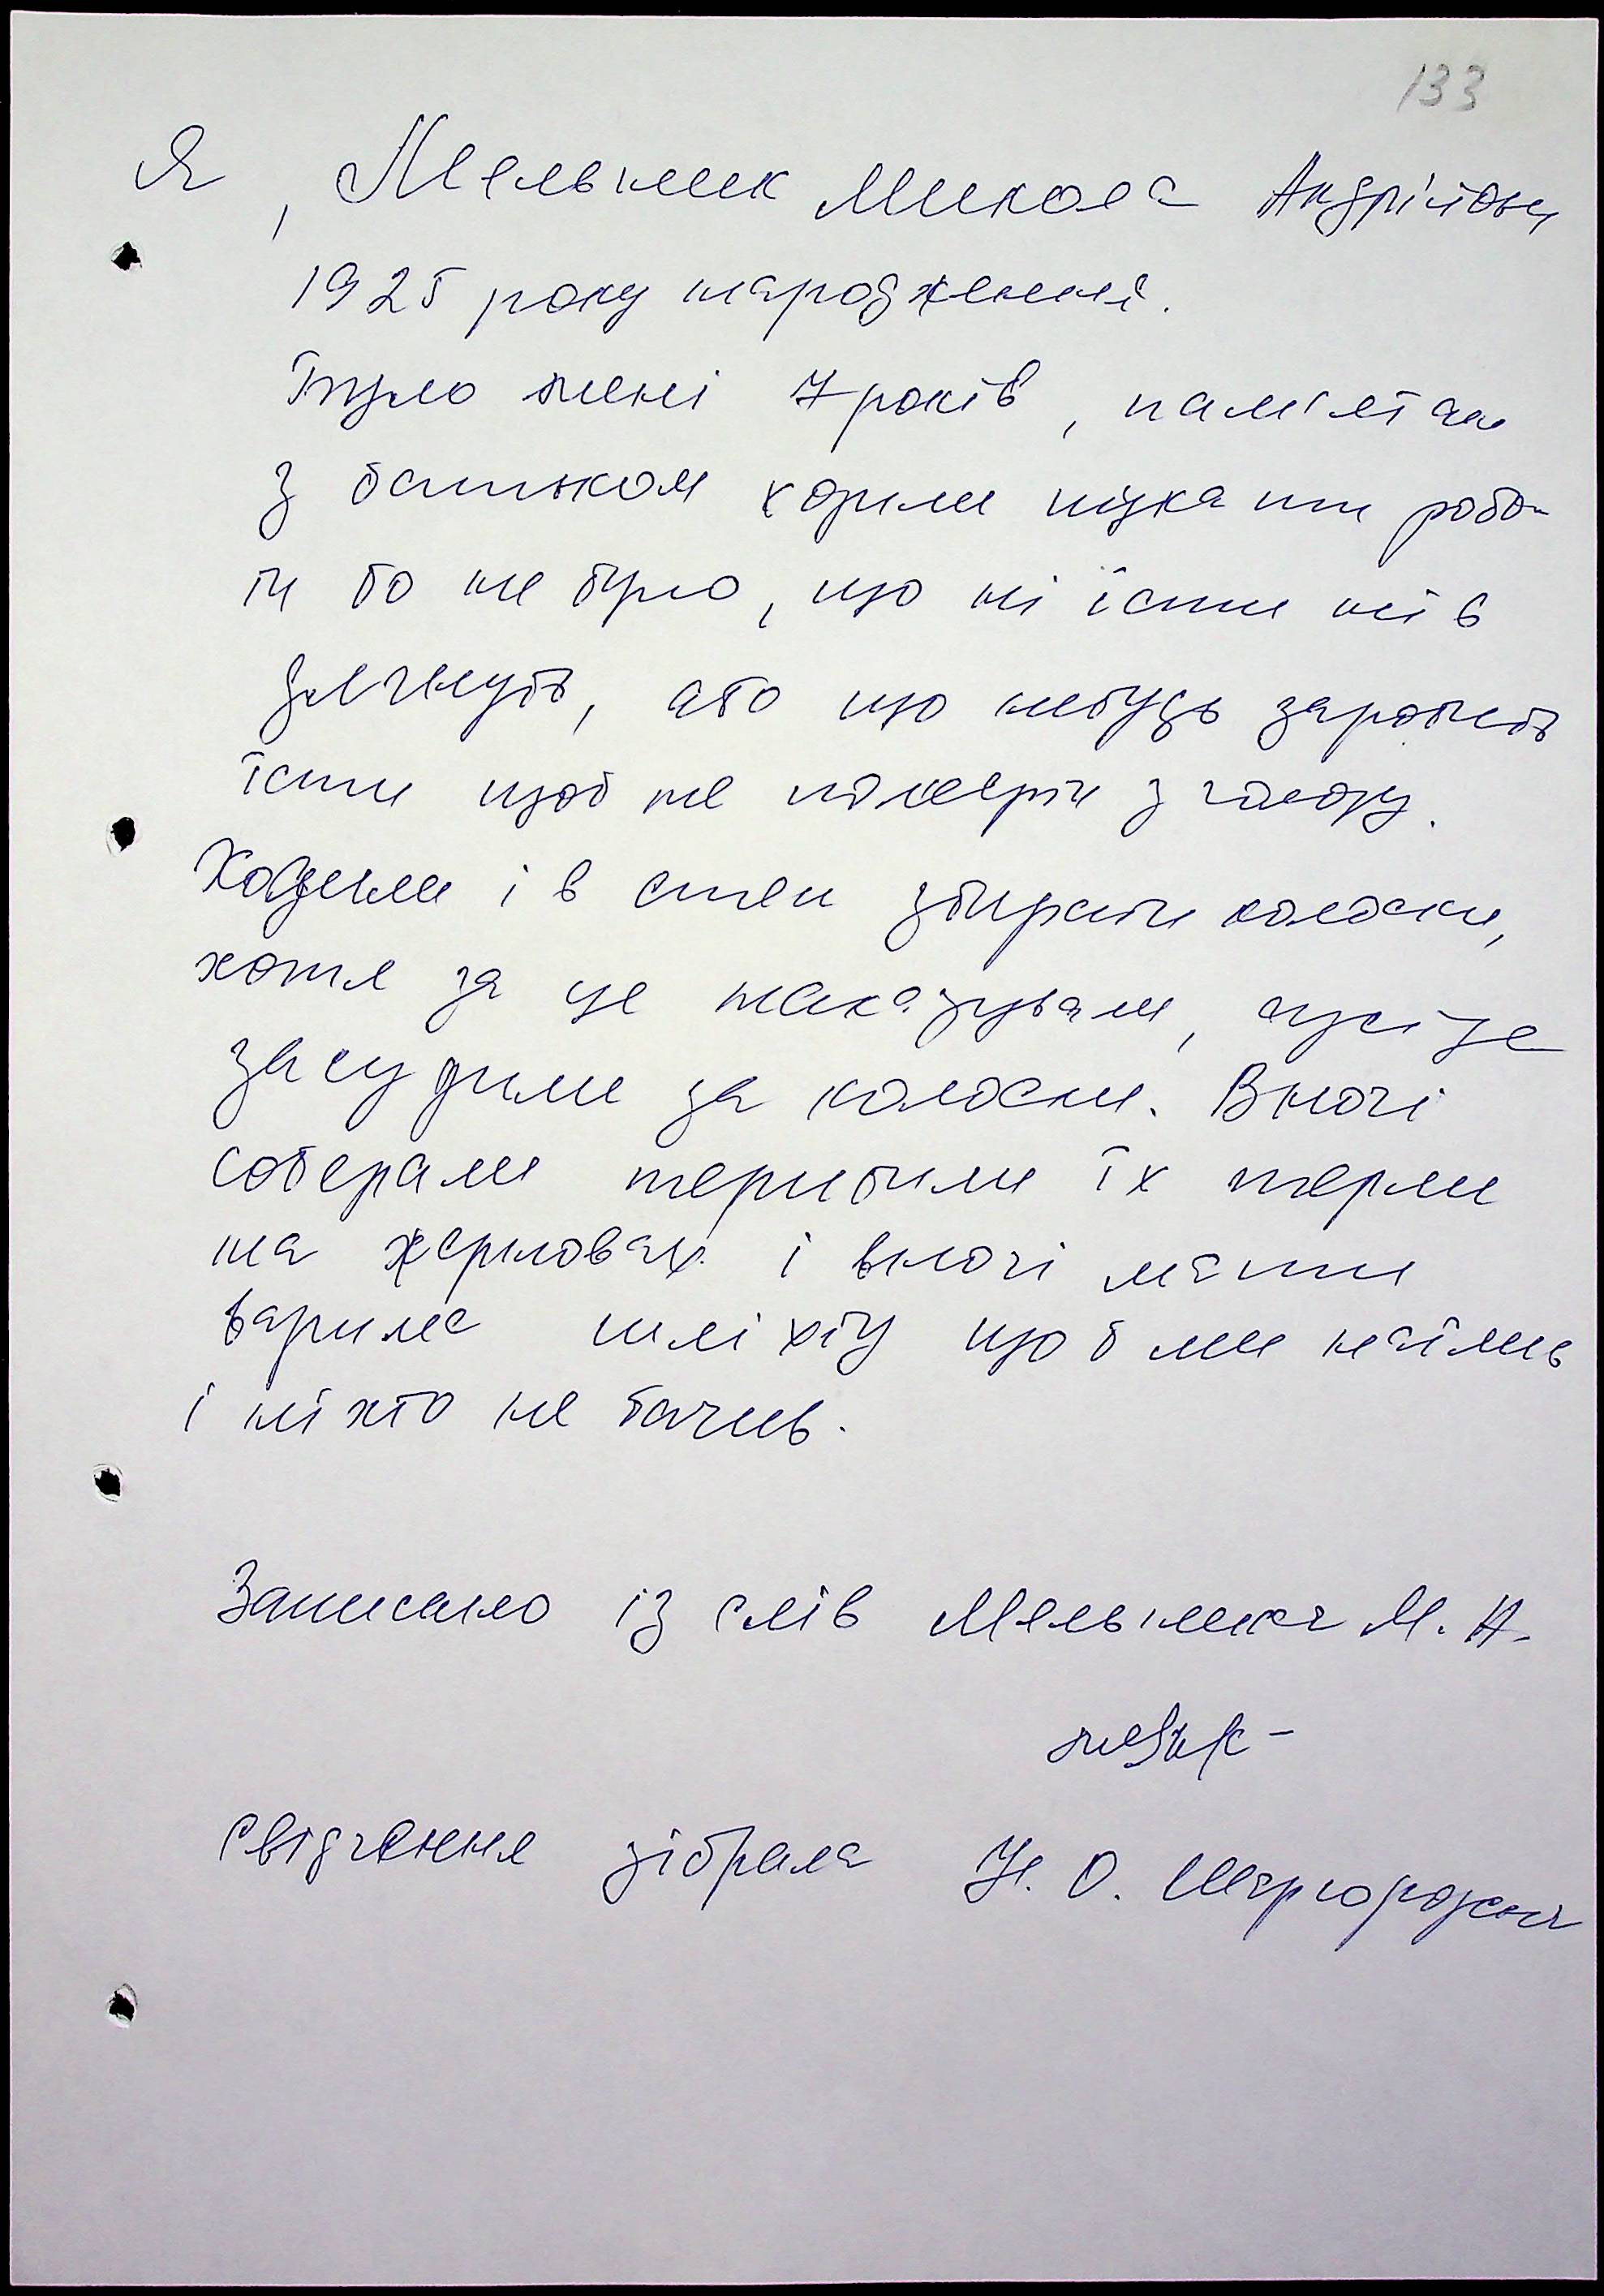 133
Я, Мельник Микола Андрійович
1925 року народження.
Було мені 7 років, пам'ятаю
з батьком ходили шукати робо-
ти бо не було, що ні їсти ні в
що небудь заробить
їсти щоб не померти з голоду.
Ходили і в степ збирати колоски,
хотя за це наказували,
засудили за колоски. Вночі
собирали теребили їх терли
на жорновах і вночі мати
варила шліхту щоб ми наїлись
і ніхто не бачив.
Записано із слів Мельника М. А.
свідчення зібрала Н. О. Шаргородська